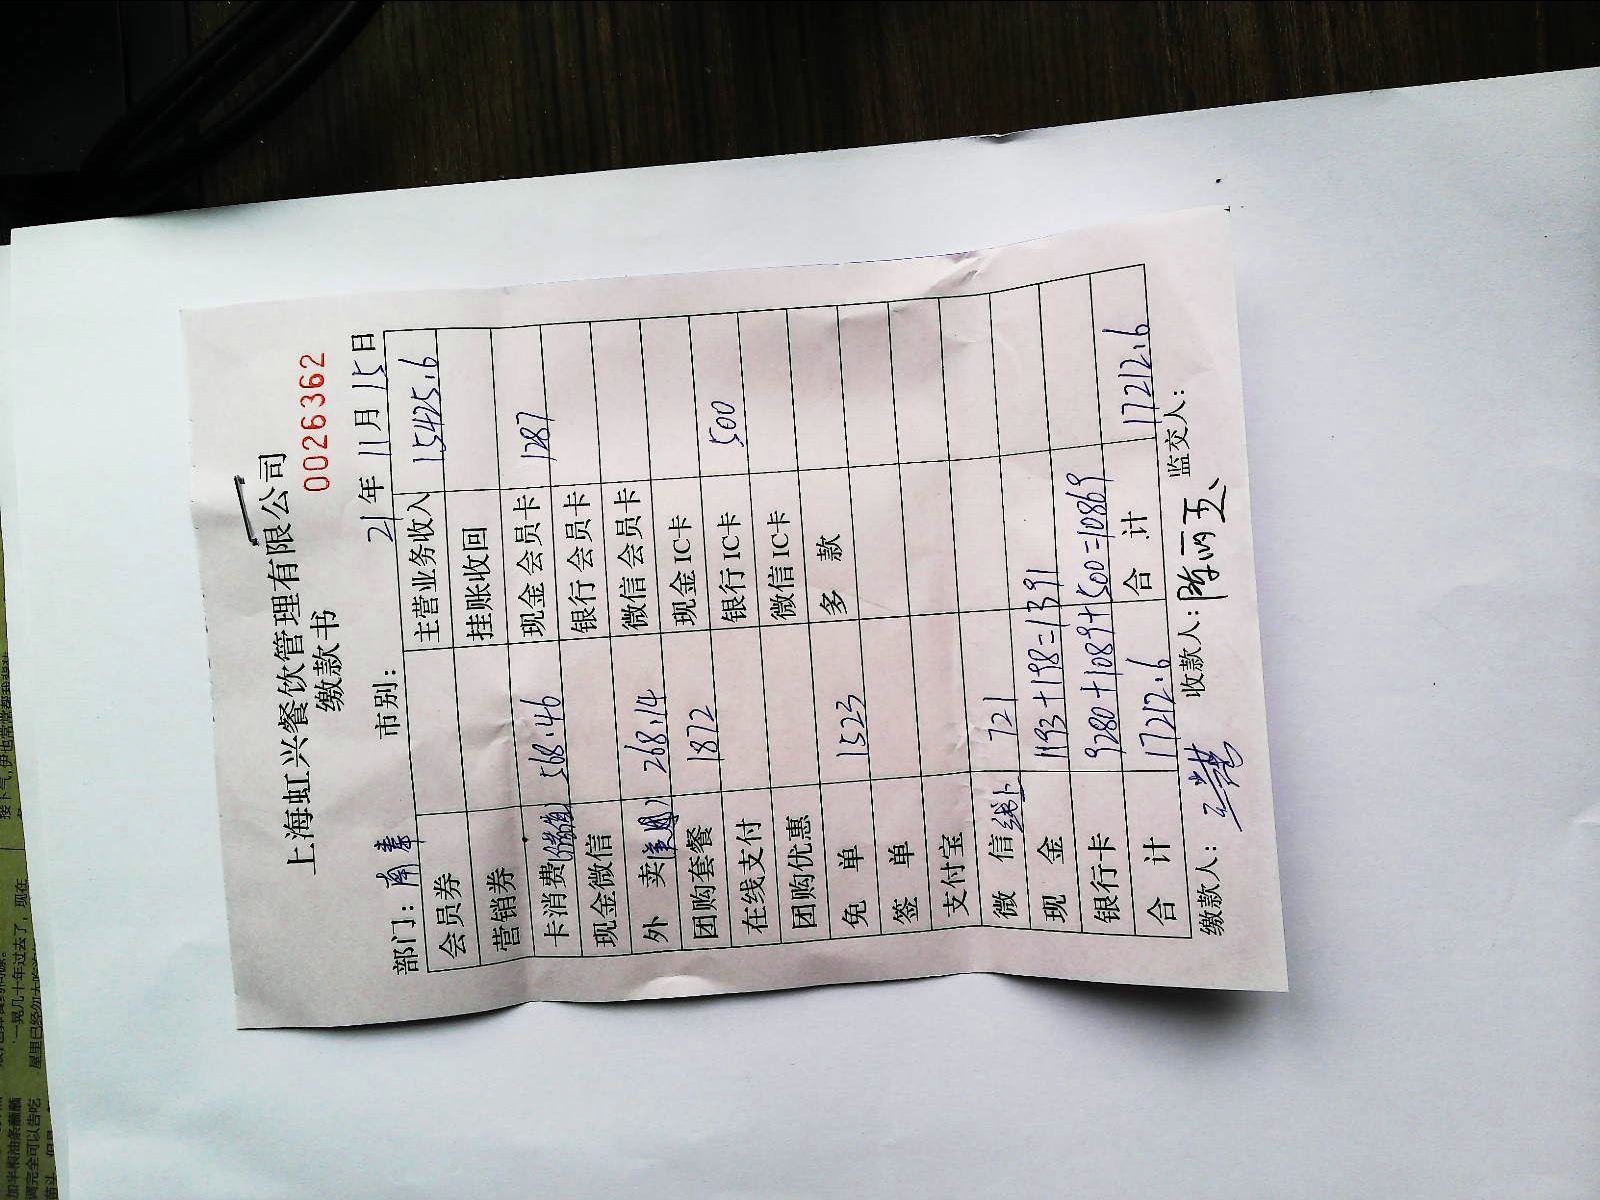 上海虹兴餐饮管理有限公司
缴款书
0026362
部门: 南奉 市别: 21年11月15日
会员券 主营业务收入 15425.6
营销券 挂账收回
卡消费 568.46 现金会员卡 1287
现金微信 银行会员卡
外卖(美团) 268.14 微信会员卡
团购套餐 1872 现金IC卡
在线支付 银行IC卡 500
团购优惠 微信IC卡
免单 1523 多款
签单
支付宝
微信 721
现金 1193+198=1391
银行卡 9280+1089+500=10869
合计 17212.6 合计 17212.6
缴款人: 收款人: 监交人: